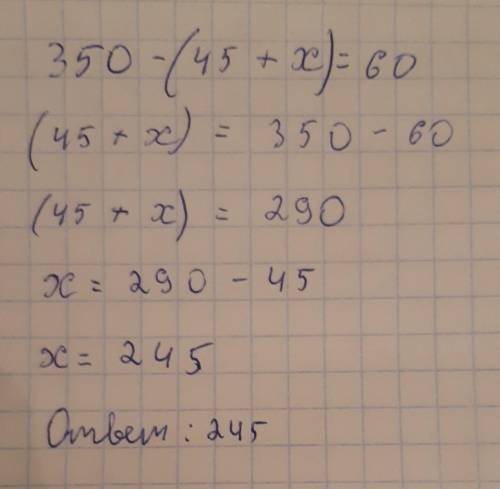 350 - (45 + x) = 60
(45 + x) = 350 - 60
(45 + x) = 290
x = 290 - 45
x = 245
Ответ : 245